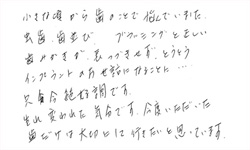 小さな頃から歯のことで悩んでいました。
虫歯、歯並び、ブラッシングと正しい
歯みがきが、思いつきせず、とうとう
インプラントのお世話になることに…
只今絶好調です。
生れ変わられた気分です。今度いただいた
歯だけは大切にして行きたいと思っています。